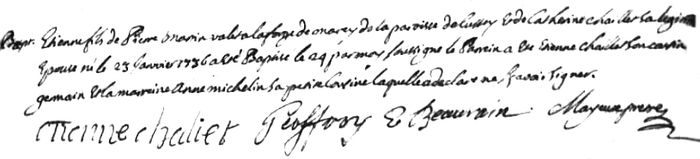 Bapt. Etienne fils de Pierre marin valet a la forge de marey de la paroisse de Cussey & de Catherine chaillet sa legitime
Epouse né le 23 Janvier 1736 a eté Baptisé le 24 par moy soussigné le Parrein a eté Etienne chaillet son cousin
germain & la marreine Anne michelin sa petite Cousine laquelle a declaré ne sçavoir signer.
Etienne chaliet Geoffroy & Beaurain